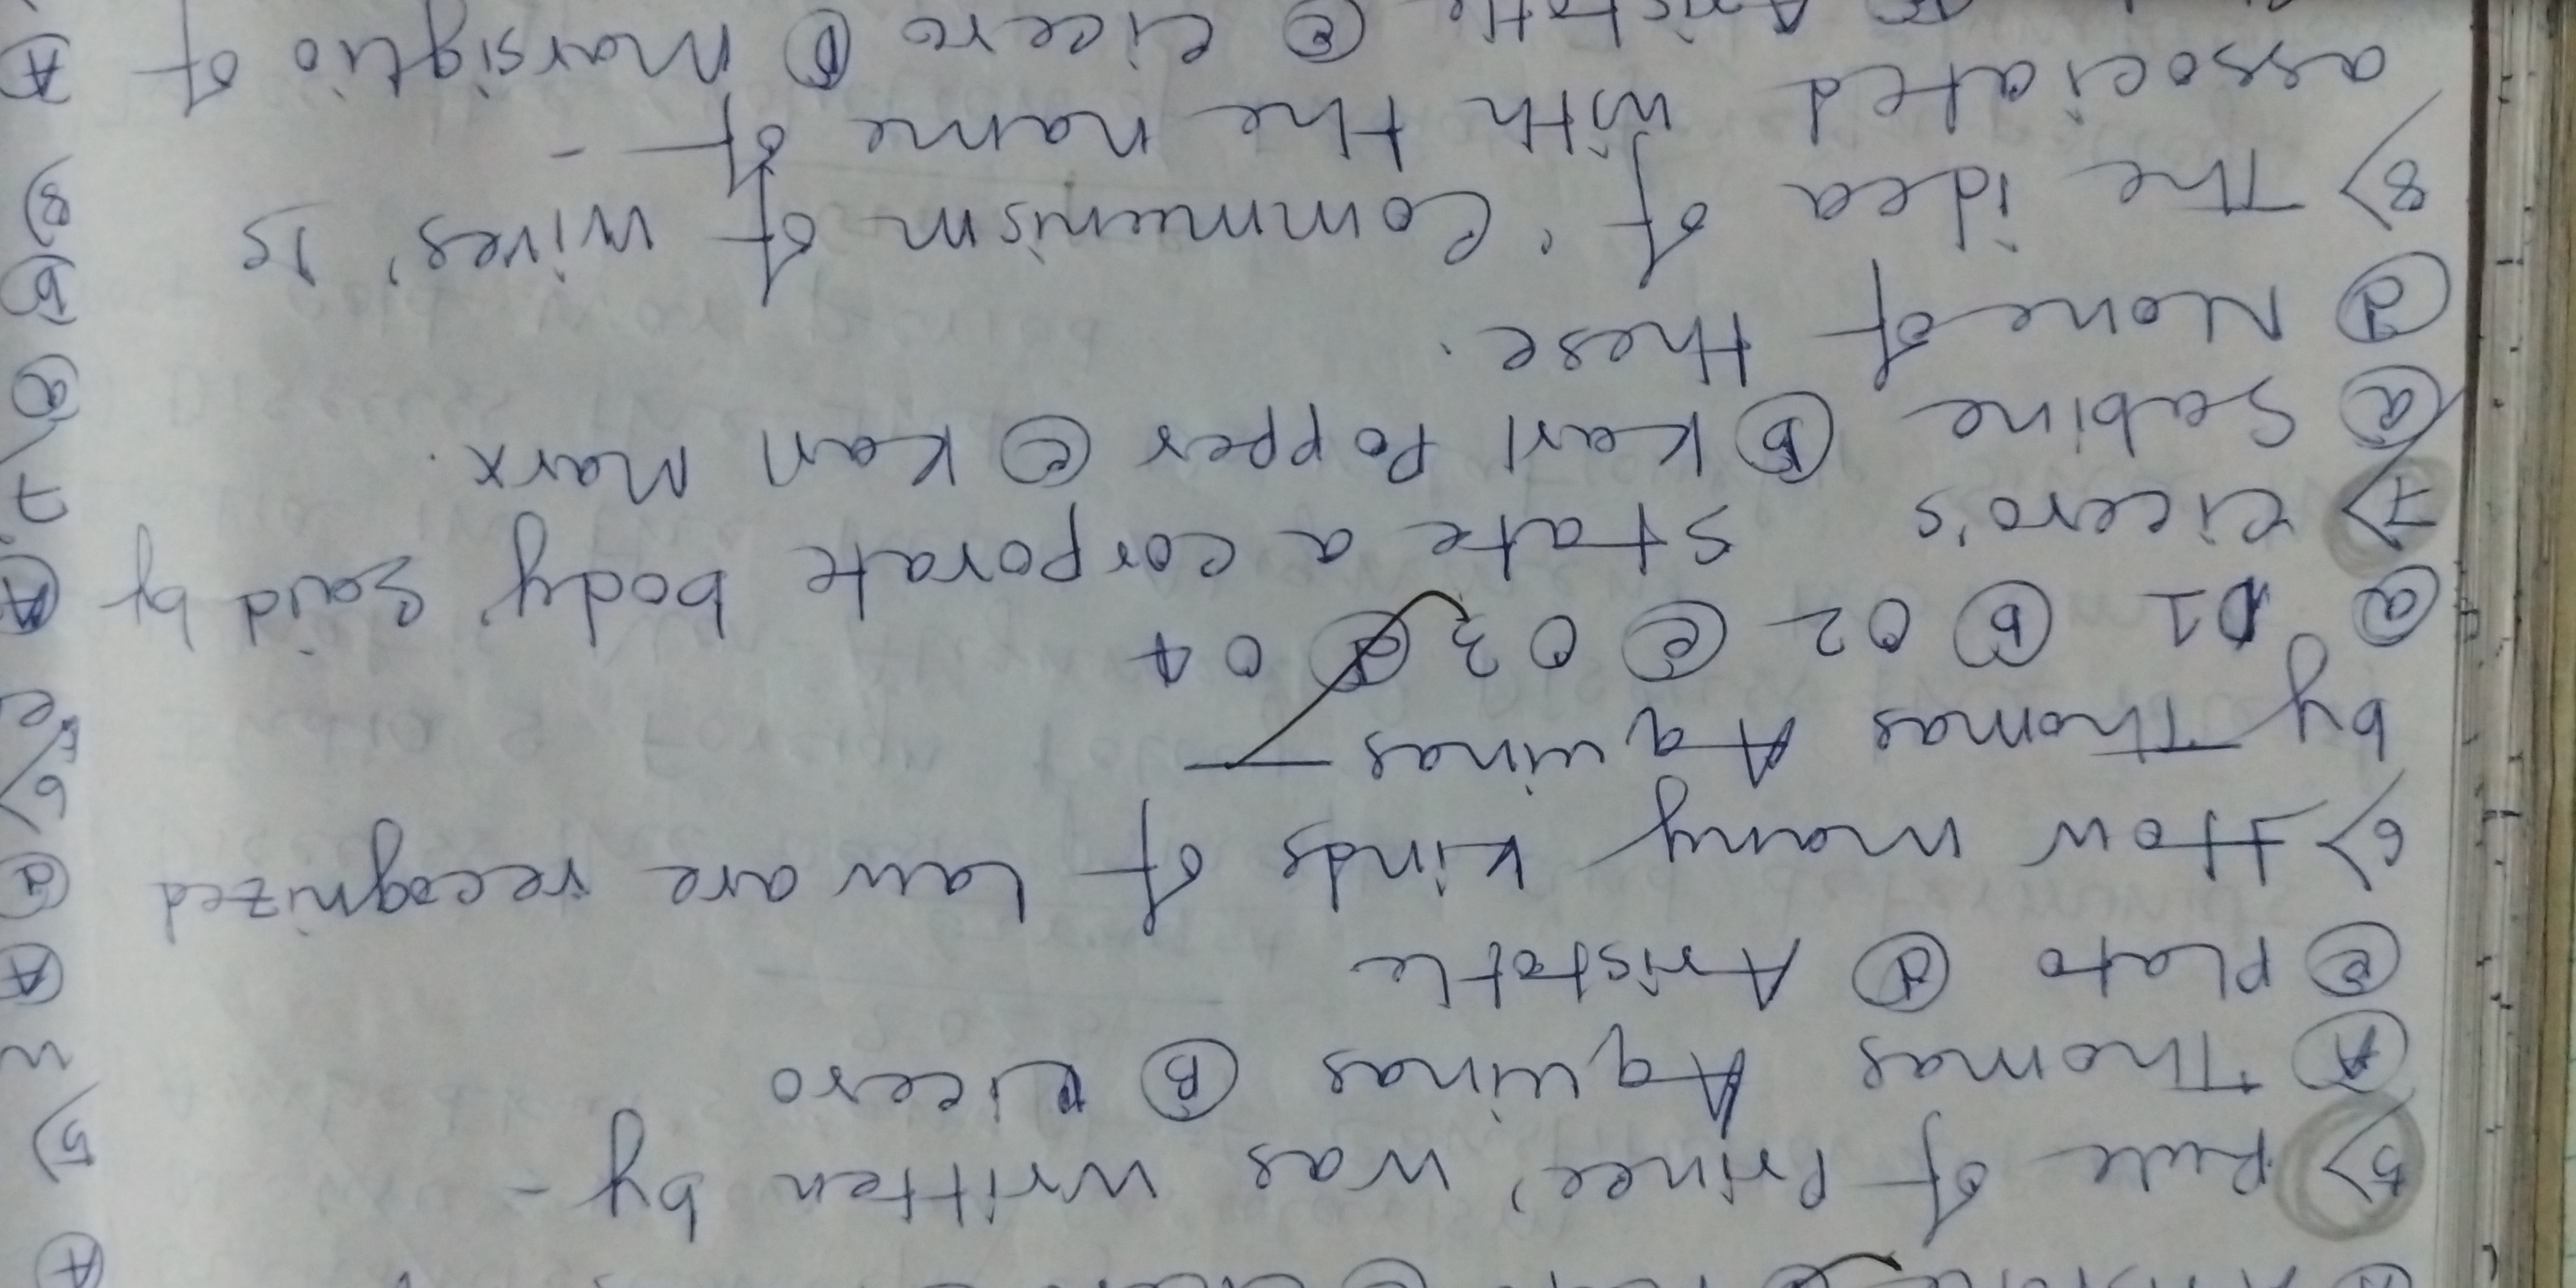 5) Rule of Prince, was written by -
(A) Thomas Aquinas (B) Cicero
(c) Plato (d) Aristotle
6) How many kinds of Law are recognized
by Thomas Aquinas -
(a) 01 (b) 02 (c) 03 (d) 04
7) Cicero's State a corporate body, Said by
(a) Sabine (b) Karl Popper (c) Karl Marx.
(d) None of these.
8) The idea of 'Communism of wives, Is
associated with the name of -
Aristotle (c) cicero (D) Marsiglio of
A
5)
A
d
6)
A
7
a
b
8)
A